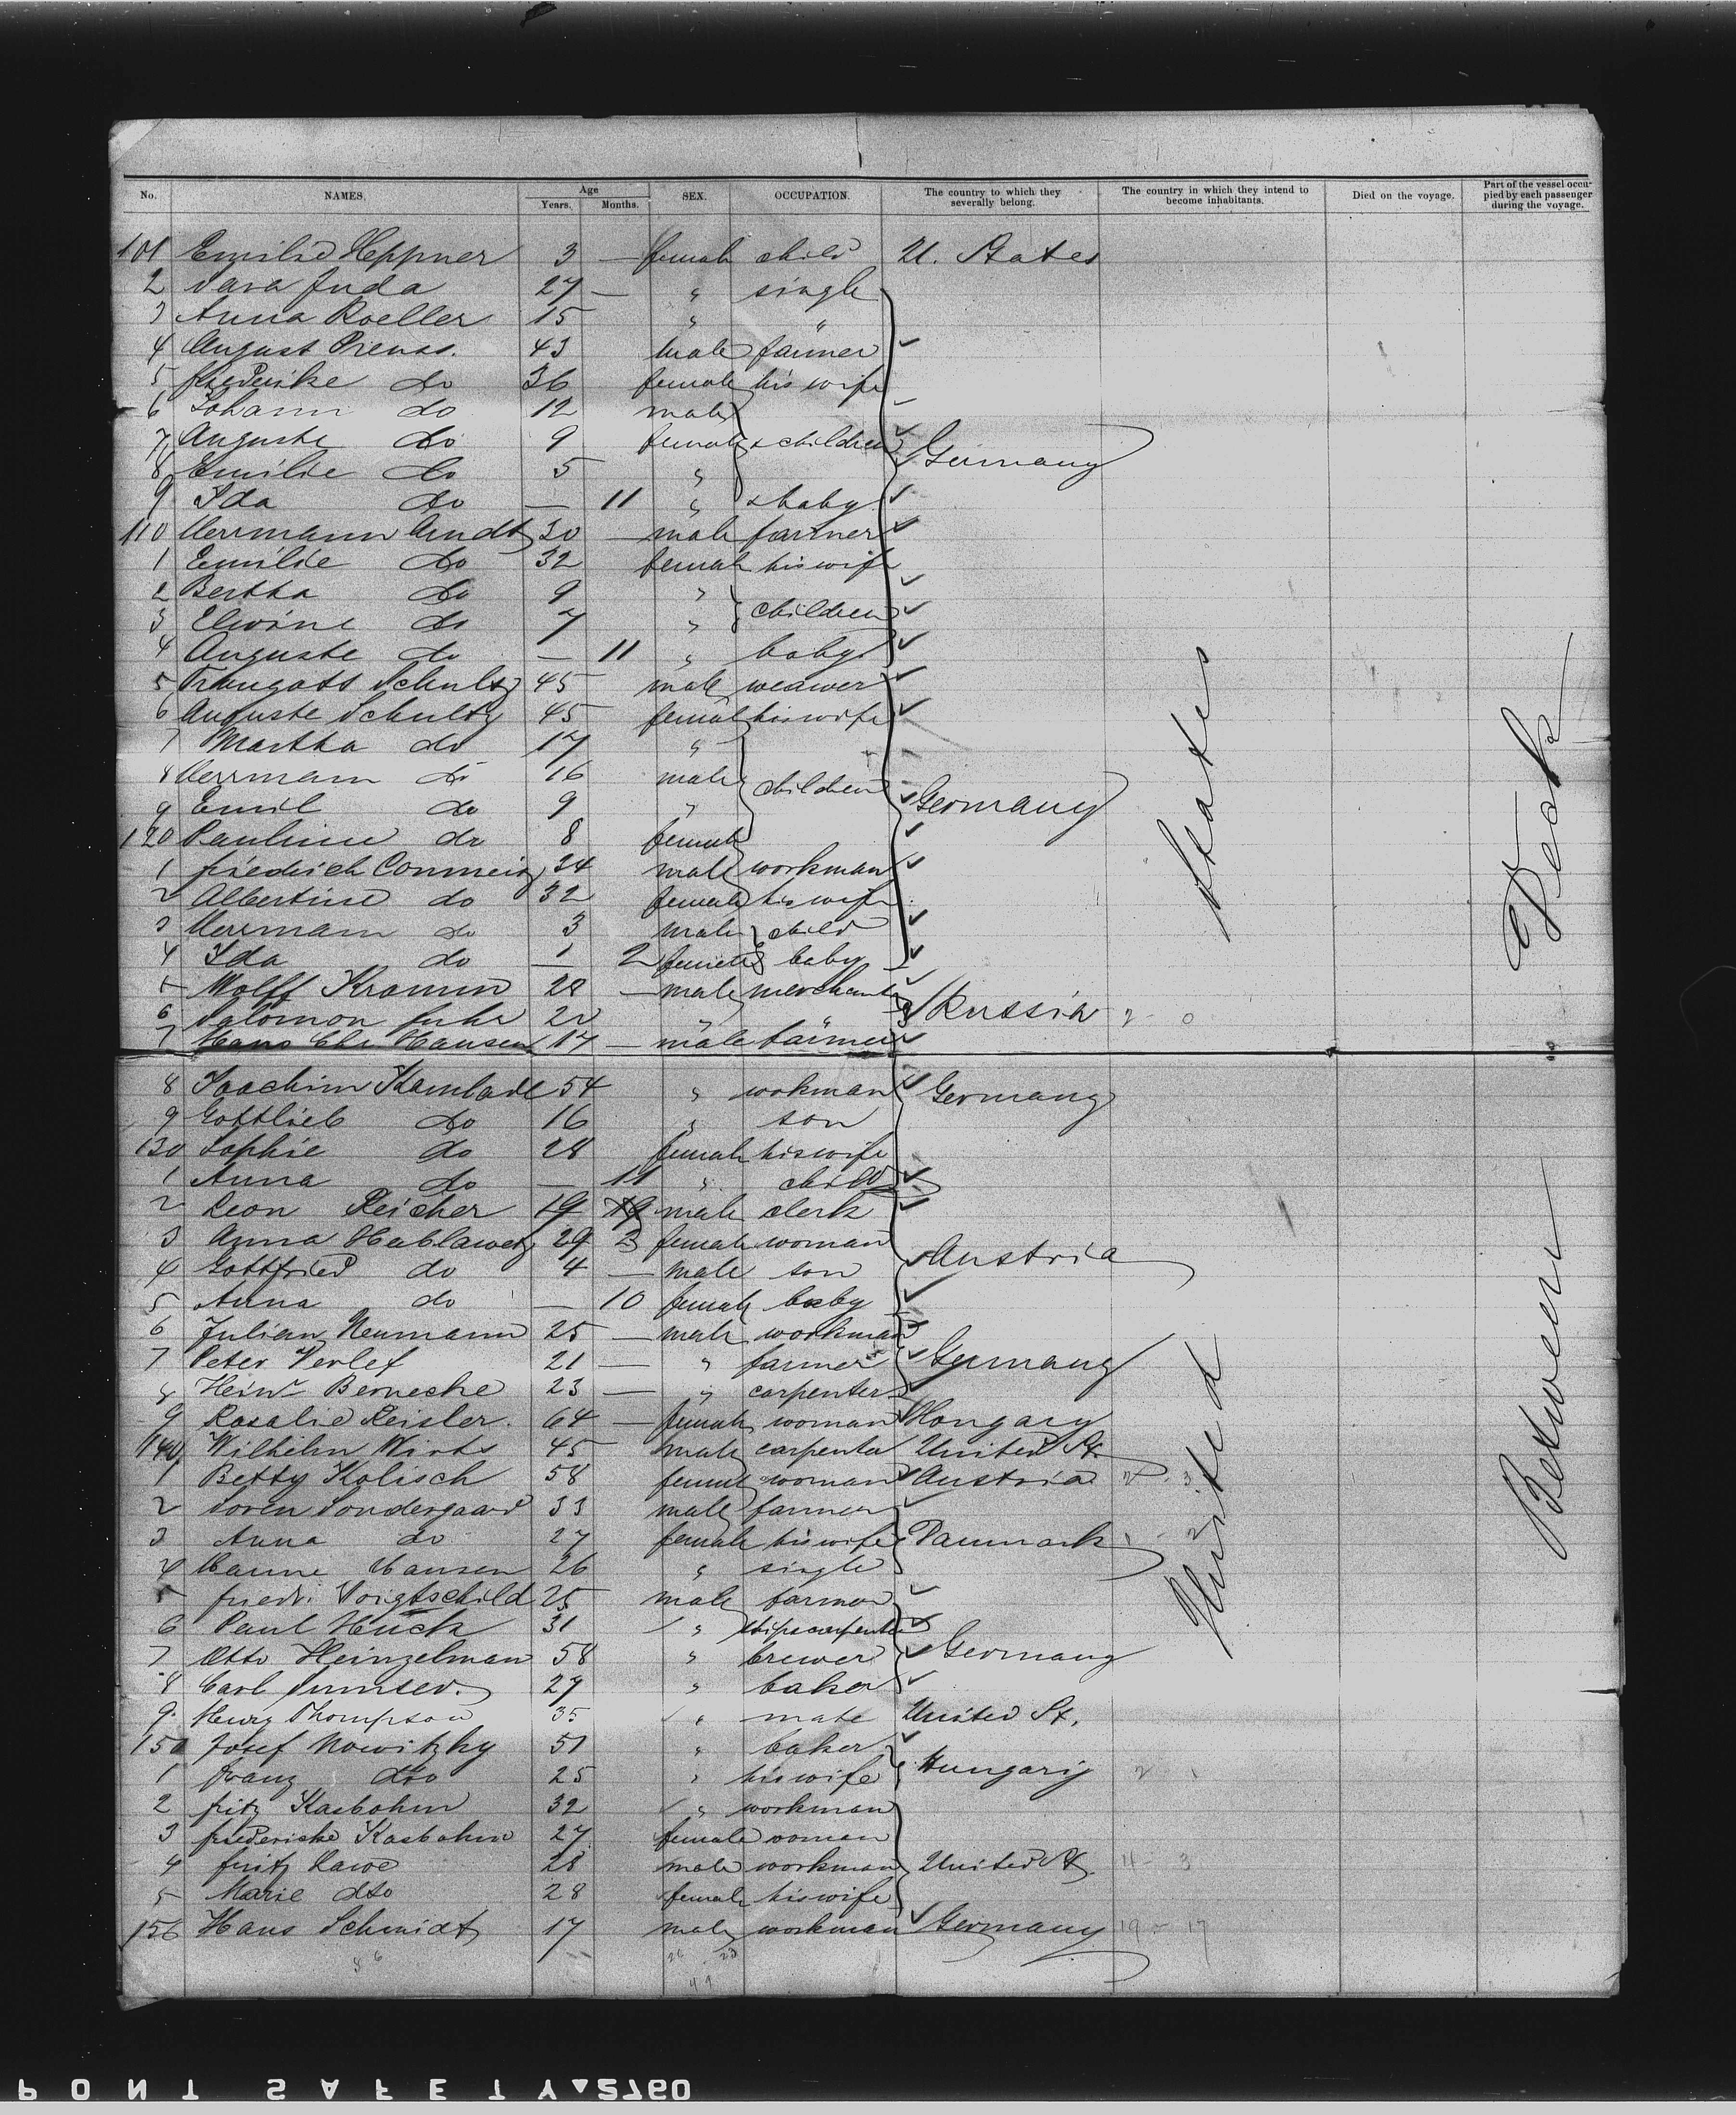 No. NAMES. Age Years. Months. SEX. OCCUPATION. The country to which they severally belong. The country in which they intend to become inhabitants. Died on the voyage. Part of the vessel occupied by each passenger during the voyage.
101 Emilie Heppner 3 — female child U. States
2 Sara Juda 27 — " single
3 Anna Roeller 15 " "
4 August Preuss. 43 male farmer
5 friederike do 36 female his wife
6 Johann do 12 male
7 Auguste do 9 female children Germany
8 Emilie do 5 "
9 Ida do — 11 " baby
110 Herrmann Arndt 30 — male farmer
1 Emilie do 32 female his wife
2 Bertha do 9 "
3 Elwine do 7 " children
4 Auguste do — 11 " baby
5 Traugott Schultz 45 male weawer
6 Auguste Schultz 45 female his wife
7 Martha do 17 "
8 Herrmann do 16 male children
9 Emil do 9 " Germany
120 Pauline do 8 female
1 friedrich 34 male workman
2 Albertine do 32 female his wife
3 Herrmann do 3 male child
4 Ida do 1 2 female baby
5 Wolff 28 — male merchant Russia 2 - 0
6 Salomon 20 " "
7 Hans Chr Hansen 17 — male farmer
8 Joachim 54 " workman Germany
9 Gottlieb do 16 " son
130 Sophie do 28 female his wife
1 Anna do — 11 " child
2 Leon Reicher 19 male clerk
3 Anna 29 3 female woman Austria
4 Gottfried do 4 — male son
5 Anna do — 10 female baby
6 Julian Neumann 25 — male workman
7 Peter 21 — " farmer Germany
8 Heinr Bernecke 23 — " carpenter
9 Rosalie Reisler. 64 — female woman Hongary
140 Wilhelm 45 male carpenter United St.
1 Betty Kolisch 58 female woman Austria 3
2 Soren Sondergaard 33 male farmer
3 Anna do 27 female his wife Danmark
4 Hanne Hansen 26 " single
5 friedr. Voigtschild 25 male farmer
6 Paul Huck 31 " shipscarpenter
7 Otto Heinzelman 58 " brewer Germany
8 Carl 27 " baker
9 Henry Thompson 35 " mate United St.
150 Josef Nowitzky 51 " baker
1 franz dto 25 " his wife Hungary 2 1
2 fritz Kasbohm 32 " workman
3 friederike Kasbohm 27 female woman
4 fritz 28 male workman United St. 11 - 3
5 Marie dto 28 female his wife
156 Hans Schmidt 17 male workman Germany 19 - 17
86 26 23
49
United States
Between Deck
PONT SAFETY▲2760